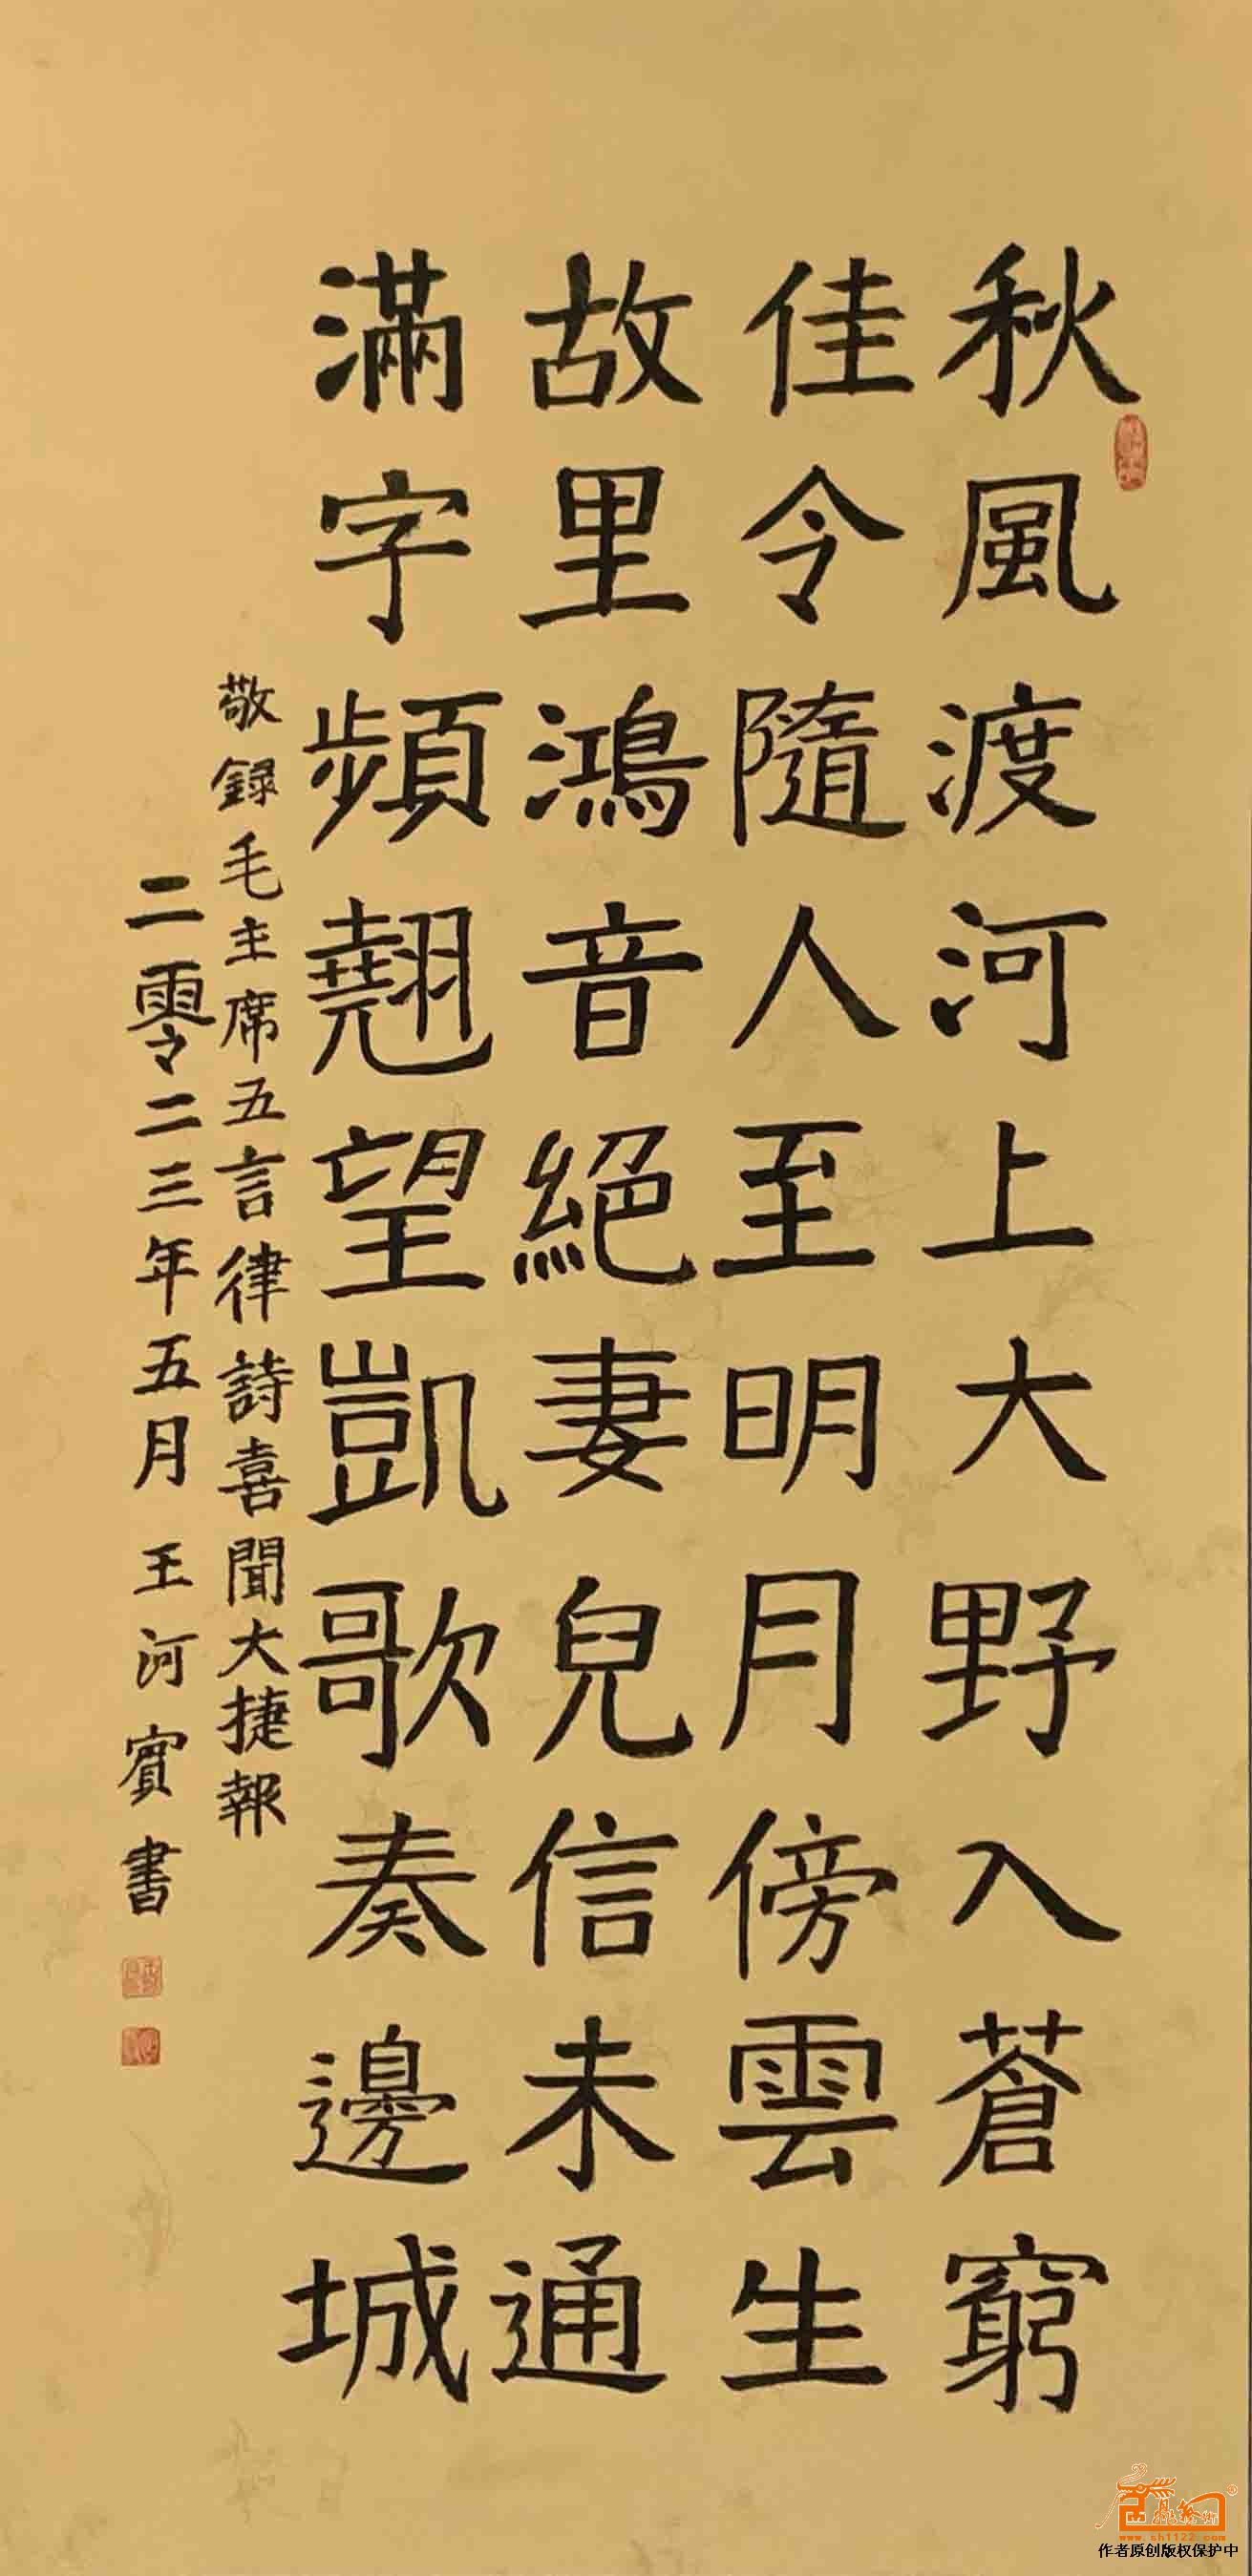 秋風渡河上大野入蒼窮
佳令隨人至明月傍雲生
故里鴻音絕妻兒信未通
滿字頻翹望凱歌奏邊城
敬録毛主席五言律詩喜聞大捷報
二零二三年五月王河賓書
www.sh1122.com
作者原创版权保护中